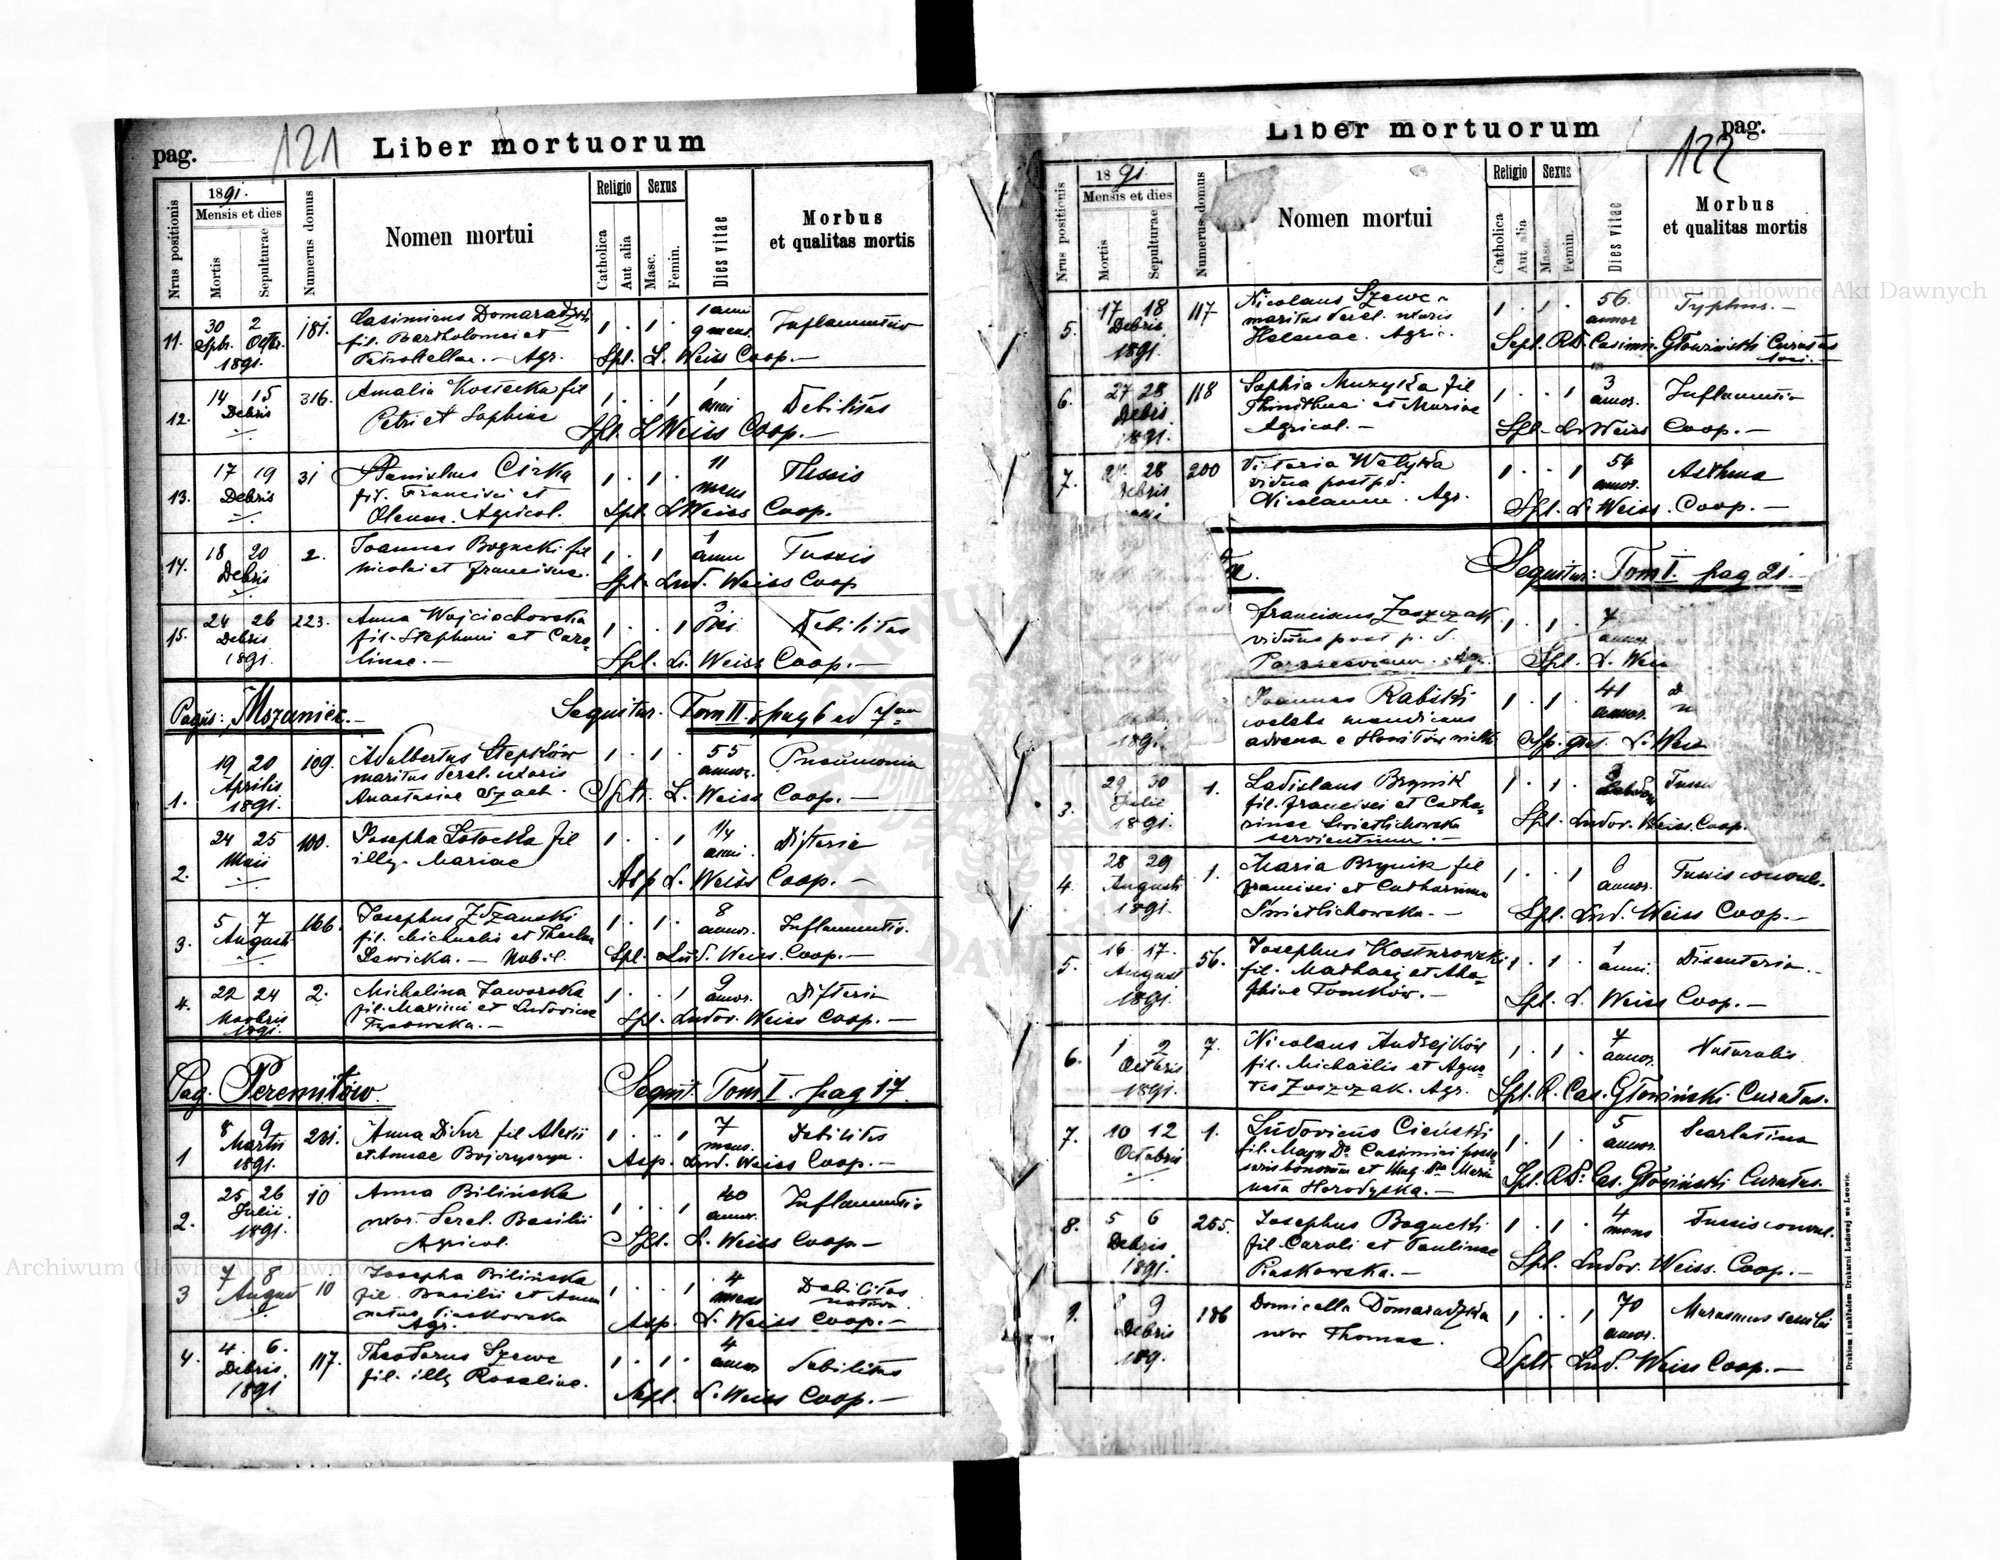 pag. 121 Liber mortuorum
Nrus positionis
1891.
Mensis et dies
Mortis
Sepulturae
Numerus domus
Nomen mortui
Religio
Catholica
Aut alia
Sexus
Masc.
Femin.
Dies vitae
Morbus
et qualitas mortis
11. 30 2 181. Casimirus Domaradzki 1 . 1 . 1 anni Inflammatio
Spbr. Octbr. fil. Bartholomei et 9 mens.
1891. Petronellae. – Agr. Spl. L. Weiss Coop. –
12. 14 15 316. Amalia Kostecka fil 1 . . 1 1 Debilitas
Debris Petri et Sophiae anni
Spl. L Weiss Coop. –
13. 17 19 31 Stanislaus Cizka 1 . 1 . 11 Thussis
Debris fil. Francisci et mens
Olenae. Agricol. Spl. L Weiss Coop.
14. 18 20 2. Joannes Bogucki fil 1 . 1 1 Tussis
Debris Nicolai et Franciscae. anni
Spl. Lud. Weiss Coop
15. 24 26 223. Anna Wojciechowska 1 . . 1 3 Debilitas
Debris fil. Stephani et Caro-
1891. linae. – Spl. L. Weiss Coop. –
Pagus: Mszaniec. – Sequitur. Tom II. pag 6 ad 7
1. 19 20 109. Adalbertus Stepków 1 . 1 . 55 Pneumonia
Aprilis maritus derel. uxoris annor.
1891. Anastasiae Spltr. L. Weiss Coop. –
2. 24 25 100. Josepha Łotocka fil 1 . . 1 1/4 Difteria
Maii illg. Mariae anni.
Asp L. Weiss Coop. –
3. 5 7 166. Josephus Zdzanski 1 . 1 . 8 Inflammatio.
August fil. Michaelis et Theclae annor.
Sawicka. – Nobil. Spl. Lud. Weiss. Coop. –
4. 22 24 2. Michalina Jaworska 1 . . 1 9 Difteria
Novbris fil. Maximi et Ludovicae annor.
1891. Tysowska. – Spl. Ludov. Weiss Coop. –
Pag. Peremiłow. Sequit. Tom I. pag 17.
1 8 9 231. Anna Didur fil Alexii 1 . . 1 7 Debilitas
Martii et Annae Bojczyszyn. mens.
1891. Asp. Lud. Weiss Coop. –
2. 25 26 10 Anna Bilińska 1 . . 1 40 Inflammatio
Julii uxor. derel. Basilii annor.
1891. Agricol. Spl. L. Weiss Coop –
3 7 8 10 Josepha Bilińska 1 . . 1 4 Debilitas
August fil. Basilii et Annae mens
natus Piaskowska
Agr. Asp. L. Weiss Coop. –
4. 4. 6. 117. Theodorus Szewc 1 . 1 . 4 Debilitas
Debris. fil. illg Rosaliae. annor
1891 Sepl. L. Weiss Coop. –
Liber mortuorum pag. 122
Nrus positionis
1891.
Mensis et dies
Mortis
Sepulturae
Numerus domus
Nomen mortui
Religio
Catholica
Aut alia
Sexus
Masc.
Femin.
Dies vitae
Morbus
et qualitas mortis
5. 17 18 117 Nicolaus Szewc 1 . 1 . 56 Typhus. –
Debris maritus derel. uxoris annor
1891. Helenae. Agric. Sepl. RD. Casimir. Głowiński Curatus
loci. –
6. 27 28 118 Sophia Muzyka fil 1 . . 1 3 Inflammatio
Debris Thimothei et Mariae annor.
1891. Agricol. – Spl. L. Weiss Coop. –
7. 28 200 Victoria Wałyka 1 . . 1 54 Asthma
Debris vidua post p.d. annor.
Nicolaum. Agr. Spl. L. Weiss. Coop. –
Sequitur: Tom I. pag 21. –
Franciscus Zaszczak 1 . 1 . 7
viduus post p. d.
Spl. L. Weis
Joannes Rabiski 1 . 1 . 41
coelebs mendicans annor.
1891. advena e L. Weis
3. 29 30 1. Ladislaus Brynik 1 . 1 . Tussis
Julii fil. Francisci et Catha-
1891. rinae Swietlichowska Spl. Ludov. Weiss. Coop.
servientium. –
4. 28 29 1. Maria Brynik fil 1 . . 1 6 Tussis convuls.
Augusti Francisci et Catharinae annor.
1891. Świetlichowska. – Spl. Lud. Weiss Coop. –
5. 16 17. 56. Josephus Kosturowski 1 . 1 . 1 Disenteria. –
August fil. Mathaej et Aga- anni.
1891. phiae Tomków. – Spl. L. Weiss Coop. –
6. 1 2 7. Nicolaus Andrejków 1 . 1 . 4 Naturalis
Octbris fil. Michaëlis et Agne- annor.
1891. tis Zaszczak. Agr. Spl. R. Cas. Głowiński Curatus.
7. 10 12 1. Ludovicus Cieński 1 . 1 . 5 Scarlatina
Octobris fil. Magn Di Casimiri posse- annor.
soris bonorum et Mag. Dae Maria
nata Horodyska. – Spl. RD: Cas. Głowiński Curatus.
8. 5 6 255. Josephus Bogucki 1 . 1 . 4 Tussis convul.
Debris fil. Caroli et Paulinae mens
1891. Piaskowska. – Spl. Ludov. Weiss. Coop. –
9. 8 9 186 Domicella Domaradzka 1 . . 1 70 Marasmus senilis
Debris uxor Thomae. annor.
189. Splt. Lud. Weiss Coop. –
Drukiem i nakładem Drukarni Ludowej we Lwowie.
Archiwum Główne Akt Dawnych
Archiwum Główne Akt Dawnych